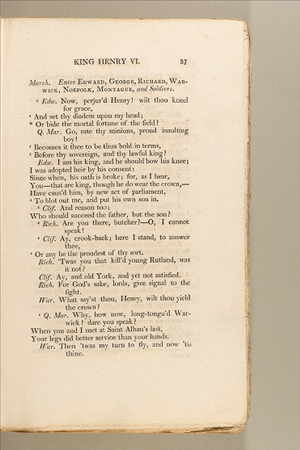 KING HENRY VI. 37
March. Enter EDWARD, GEORGE, RICHARD, WAR-
WICK, NORFOLK, MONTAGUE, and Soldiers.
‘ Edw. Now, perjur'd Henry! wilt thou kneel
for grace,
‘ And set thy diadem upon my head;
“ Or bide the mortal fortune of the field?
Q. Mar. Go, rate thy minions, proud insulting
boy!
Becomes it thee to be thus bold in terms,
‘ Before thy sovereign, and thy lawful king?
Edw. I am his king, and he should bow his knee;
I was adopted heir by his consent:
Since when, his oath is broke; for, as I hear,
You—that are king, though he do wear the crown,—
Have caus'd him, by new act of parliament,
‘ To blot out me, and put his own son in.
‘ Clif. And reason too;
Who should succeed the father, but the son?
‘ Rich. Are you there, butcher?—O, I cannot
speak!
‘ Clif. Ay, crook-back; here I stand, to answer
thee,
‘ Or any he the proudest of thy sort.
Rich. 'Twas you that kill'd young Rutland, was
it not?
Clif. Ay, and old York, and yet not satisfied.
Rich. For God's sake, lords, give signal to the
fight.
War. What say'st thou, Henry, wilt thou yield
the crown?
‘ Q. Mar. Why, how now, long-tongu'd War-
wick? dare you speak?
When you and I met at Saint Alban's last,
Your legs did better service than your hands.
War. Then 'twas my turn to fly, and now 'tis
thine.